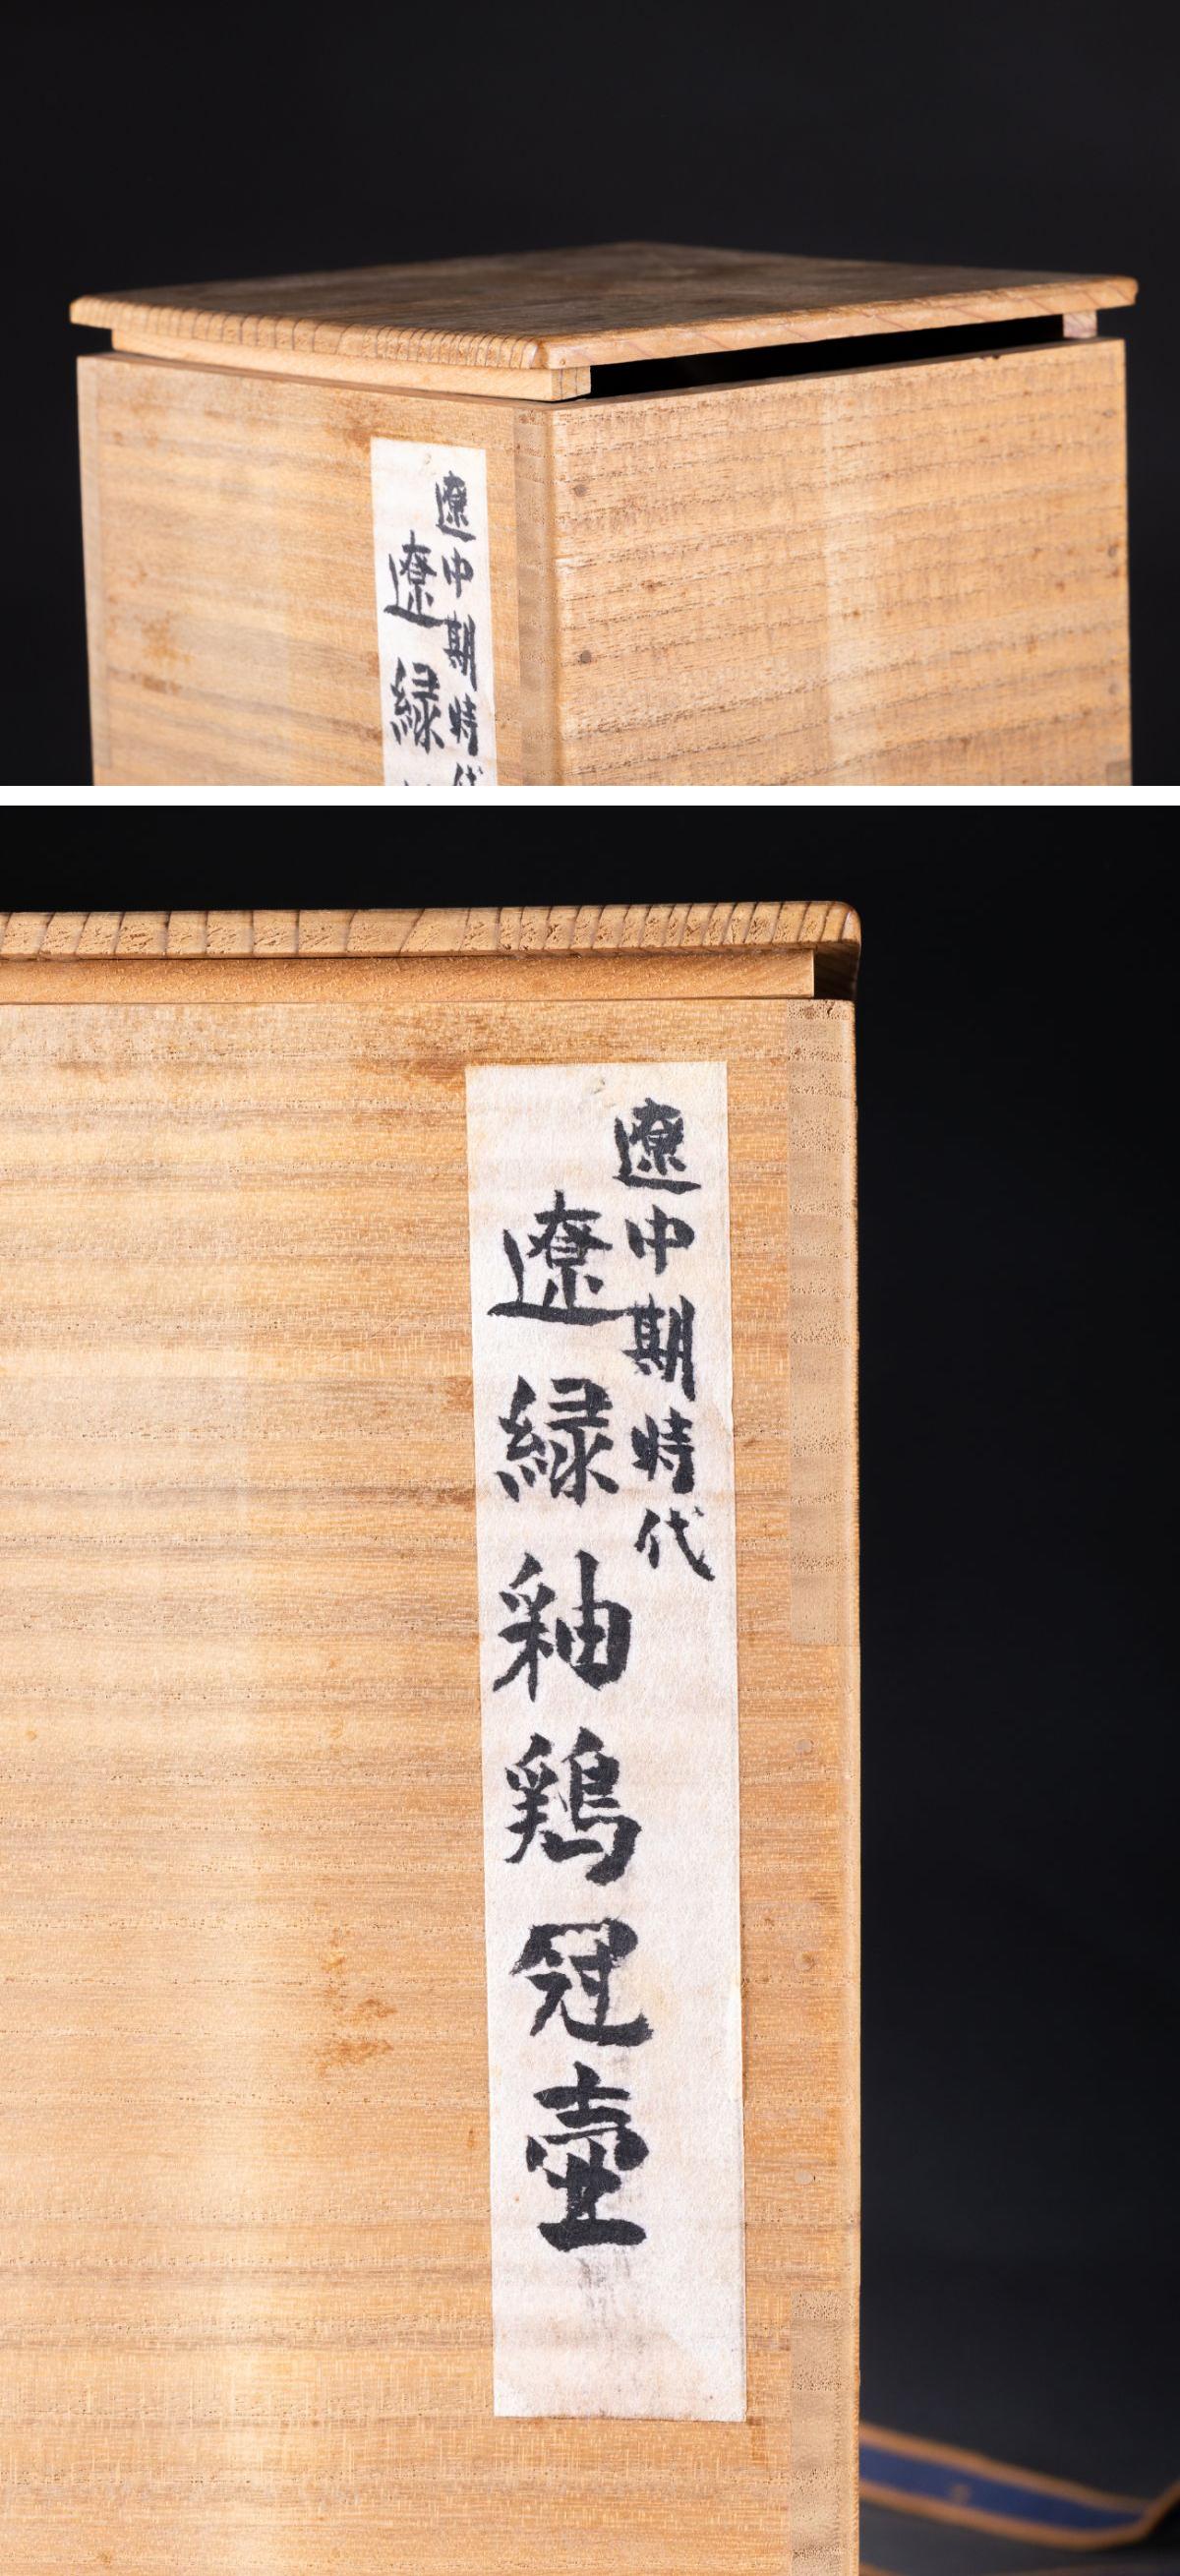 遼中期時代
遼緑
遼中期時代
遼緑釉鶏冠壷